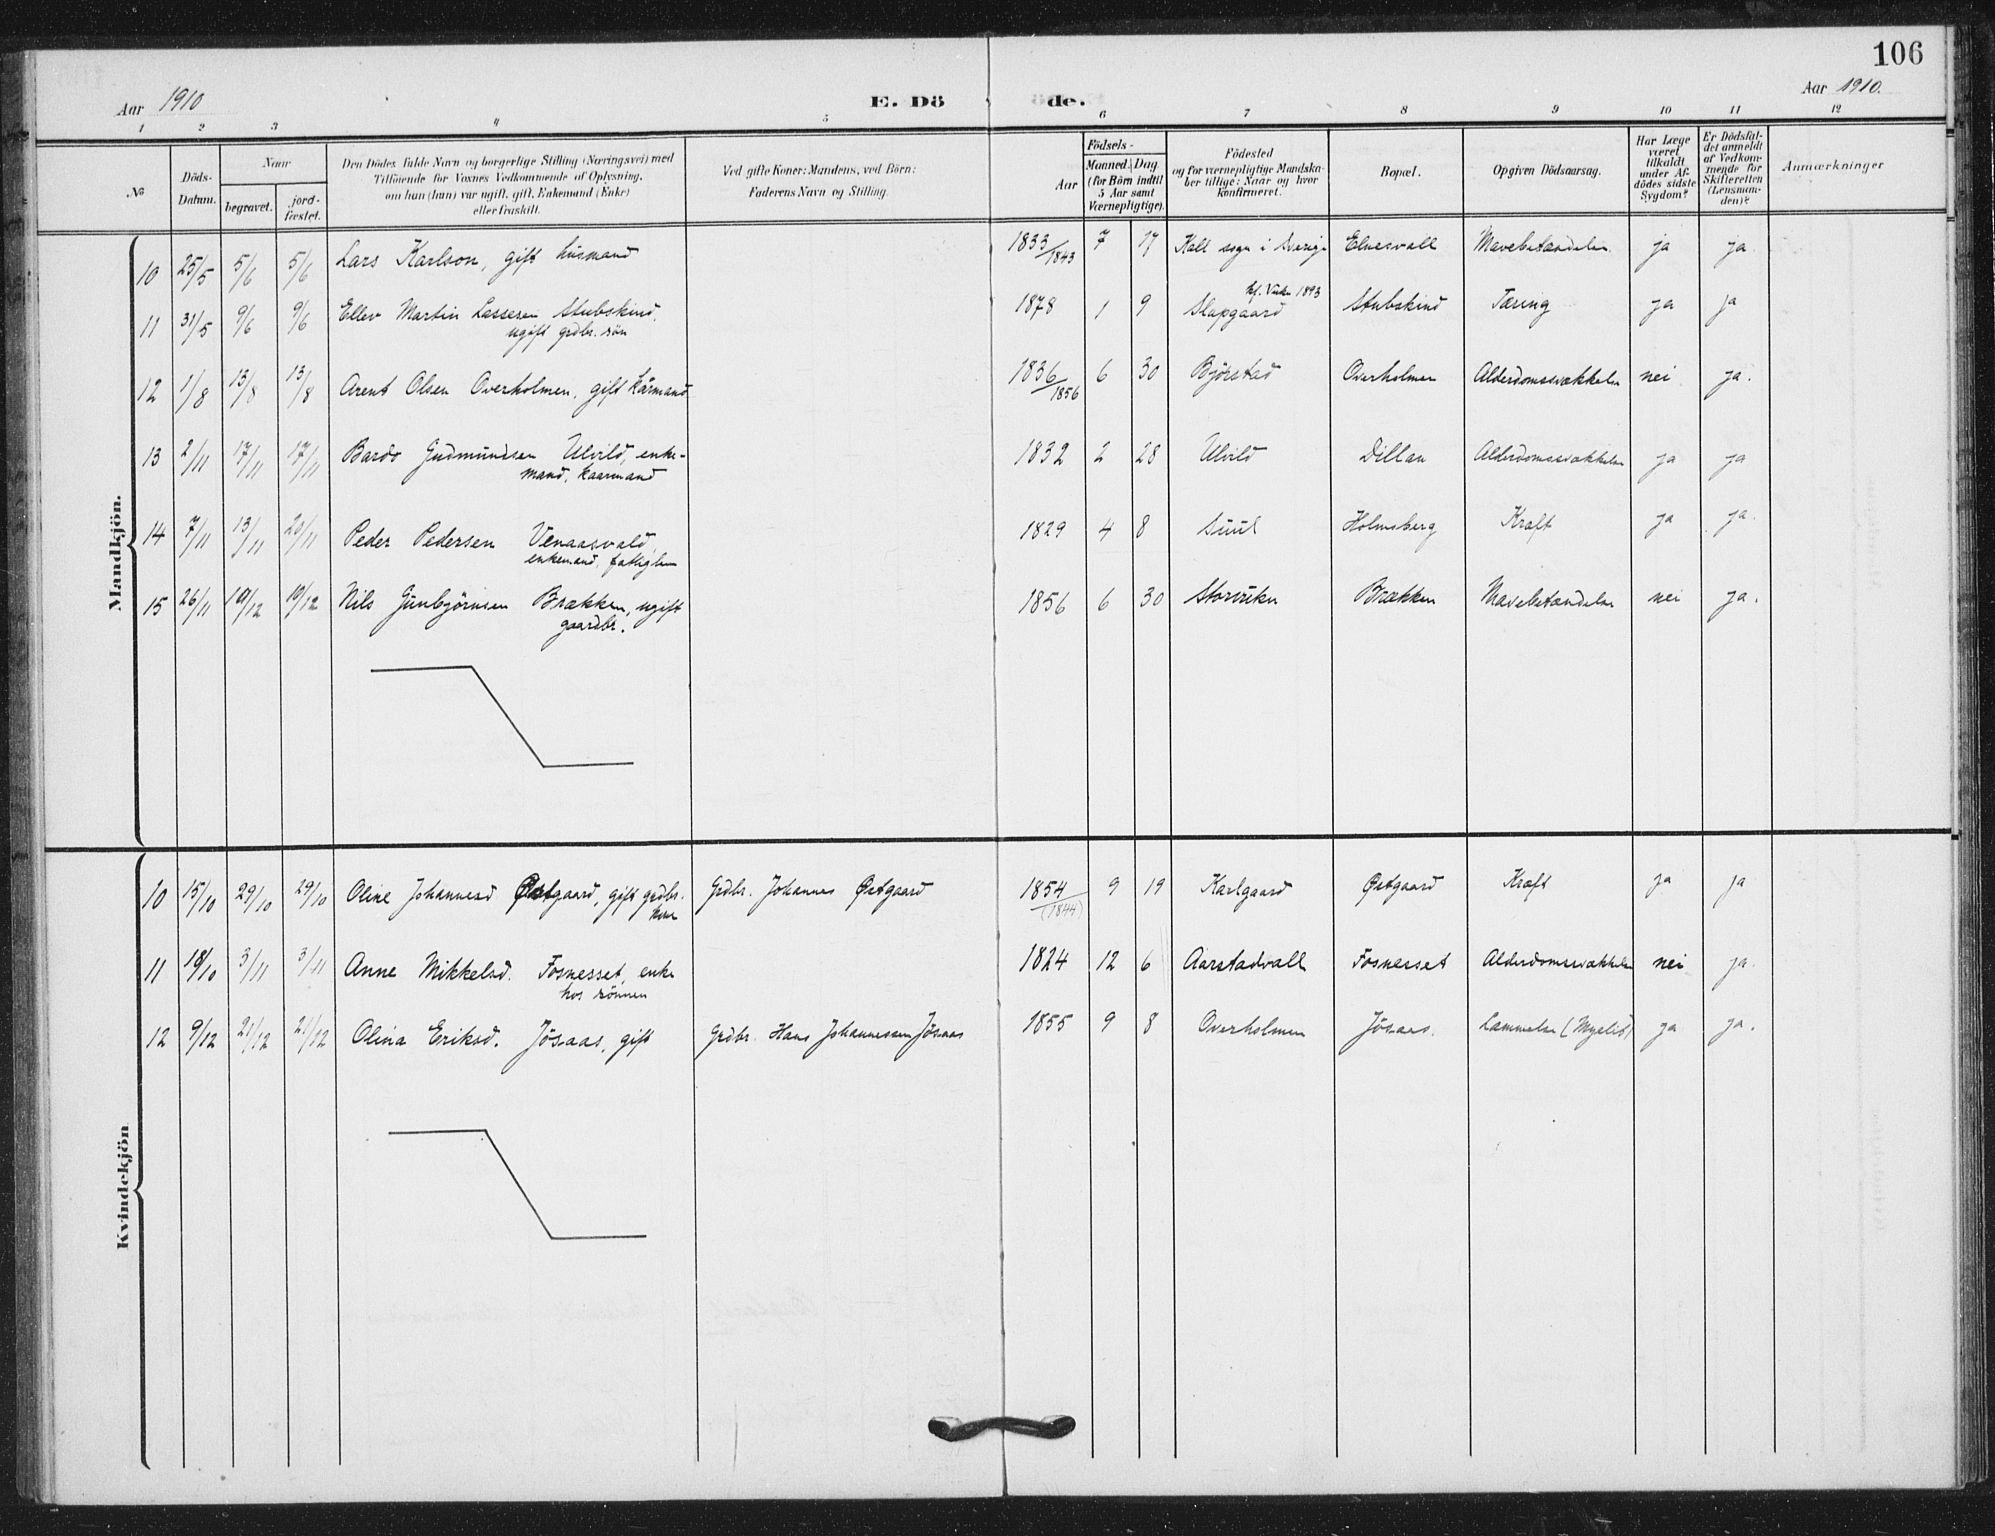 106
Aar 1910
E. Döde.
Aar 1910.
1 2 3 4 5 6 7 8 9 10 11 12
No
Döds-Datum.
Naar
begravet.
jord-fæstet.
Den Dödes fulde Navn og borgerlige Stilling (Næringsvei) med
Tilföiende for Voxnes Vedkommende af Oplysning,
om hun (han) var ugift, gift, Enkemand (Enke)
eller fraskilt.
Ved gifte Koner: Mandens, ved Börn:
Faderens Navn og Stilling.
Födsels-
Aar
Maaned. Dag
(for Börn indtil
5 Aar samt
Værnepligtige).
Födested
og for værnepligtige Mandska-
ber tillige: Naar og hvor
konfirmeret.
Bopæl.
Opgiven Dödsaarsag.
Har Læge
været
tilkaldt
under Af-
dödes sidste
Sygdom?
Er Dödsfal-
det anmeldt
af Vedkom-
mende for
Skifteretten
(Lensman-
den)?
Anmærkninger
Mandkjön.
10 25/5 5/6 5/6 Lars Karlson, gift husmand 1833/1843 7 17 Kall sogn i Sverige Elnesvall Mavebetændelse ja ja
kf. Vuku 1893
11 31/5 9/6 9/6 Ellev Martin Lassesen Stubskind, 1878 1 9 Slapgaard Stubskind Tæring ja ja
ugift grdbr. sön
12 1/8 13/8 13/8 Arent Olsen Overholmen, gift kårmand 1836/1856 6 30 Björstad Overholmen Alderdomssvækkelse nei ja.
13 2/11 17/11 17/11 Bardo Gudmundsen Ulvild, enke- 1832 2 28 Ulvild Dillan Alderdomssvækkelse ja ja
mand, kaarmand
14 7/11 13/11 20/11 Peder Pedersen Venaasvald, 1829 4 8 Suul Holmsberg Kræft ja ja.
enkemand, fattiglem
15 26/11 19/12 19/12 Nils Gunbjörnsen Brækken, ugift 1856 6 30 Storviken Brækken Mavebetændelse nei ja.
gaardbr.
Kvindekjön
10 15/10 29/10 29/10 Oline Johannesd Østgaard, gift grdbr. Grdbr. Johannes Østgaard 1854 9 19 Karlgaard Østgaard Kræft ja ja
kone (1844)
11 18/10 3/11 3/11 Anne Mikkelsd. Fosnesset, enke 1824 12 6 Aarstadvall Fosnesset Alderdomssvækkelse nei ja.
hos sönnen
12 9/12 21/12 21/12 Olina Eriksd. Jösaas, gift Grdbr. Hans Johannessen Jösaas 1855 9 8 Overholmen Jösaas. Lammelse (Myelit) ja ja.